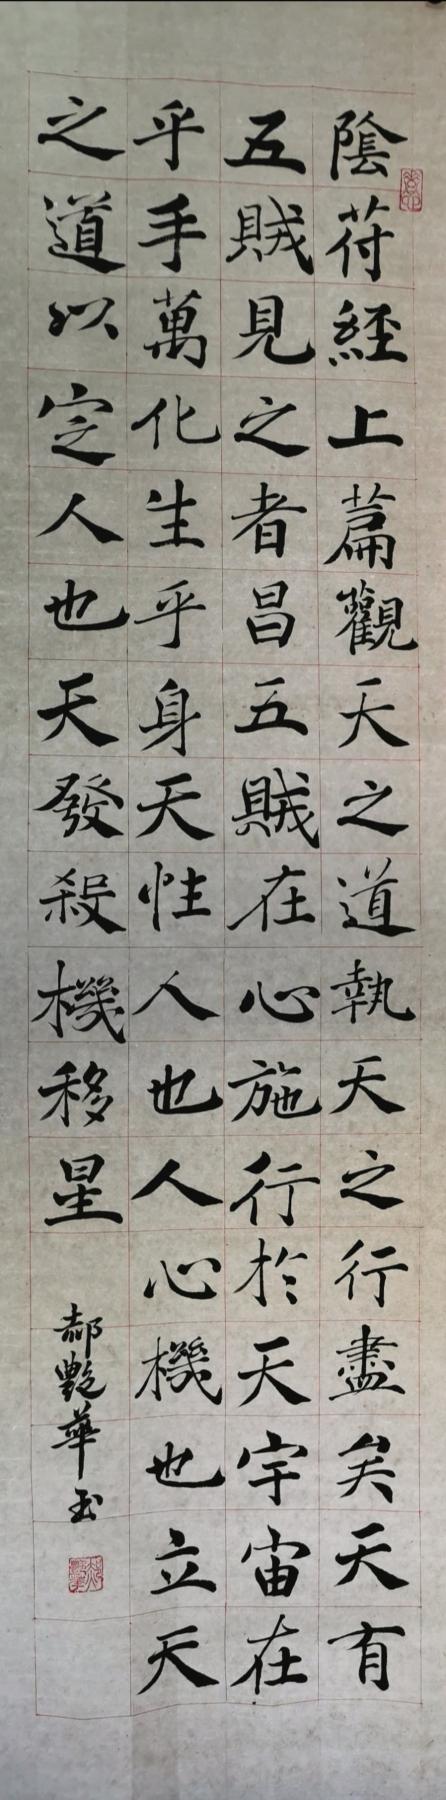 陰苻經上篇觀天之道執天之行盡矣天有
五賊見之者昌五賊在心施行於天宇宙在
乎手萬化生乎身天性人也人心機也立天
之道以定人也天發殺機移星
郝艷華